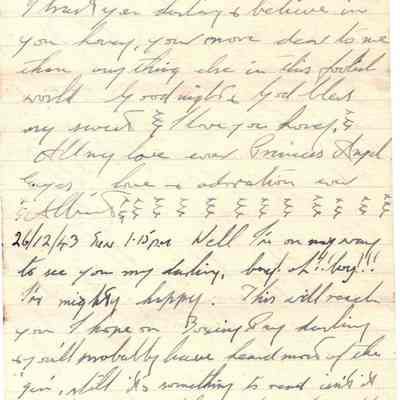 I trust you darling & believe in
you honey, your more dear to me
than any thing else in this
world Goodnight & God bless
my sweet I love you honey,
All my love ever Princess Angel
Eyes, love & adoration ever
26/12/43 1.15pm Well I'm on my way
to see you my darling, boy oh!! boy!!!
I'm mighty happy. This will reach
you I hope on Boxing Day darling
& you'll probably have heard most of the
still it's something to read isn't it